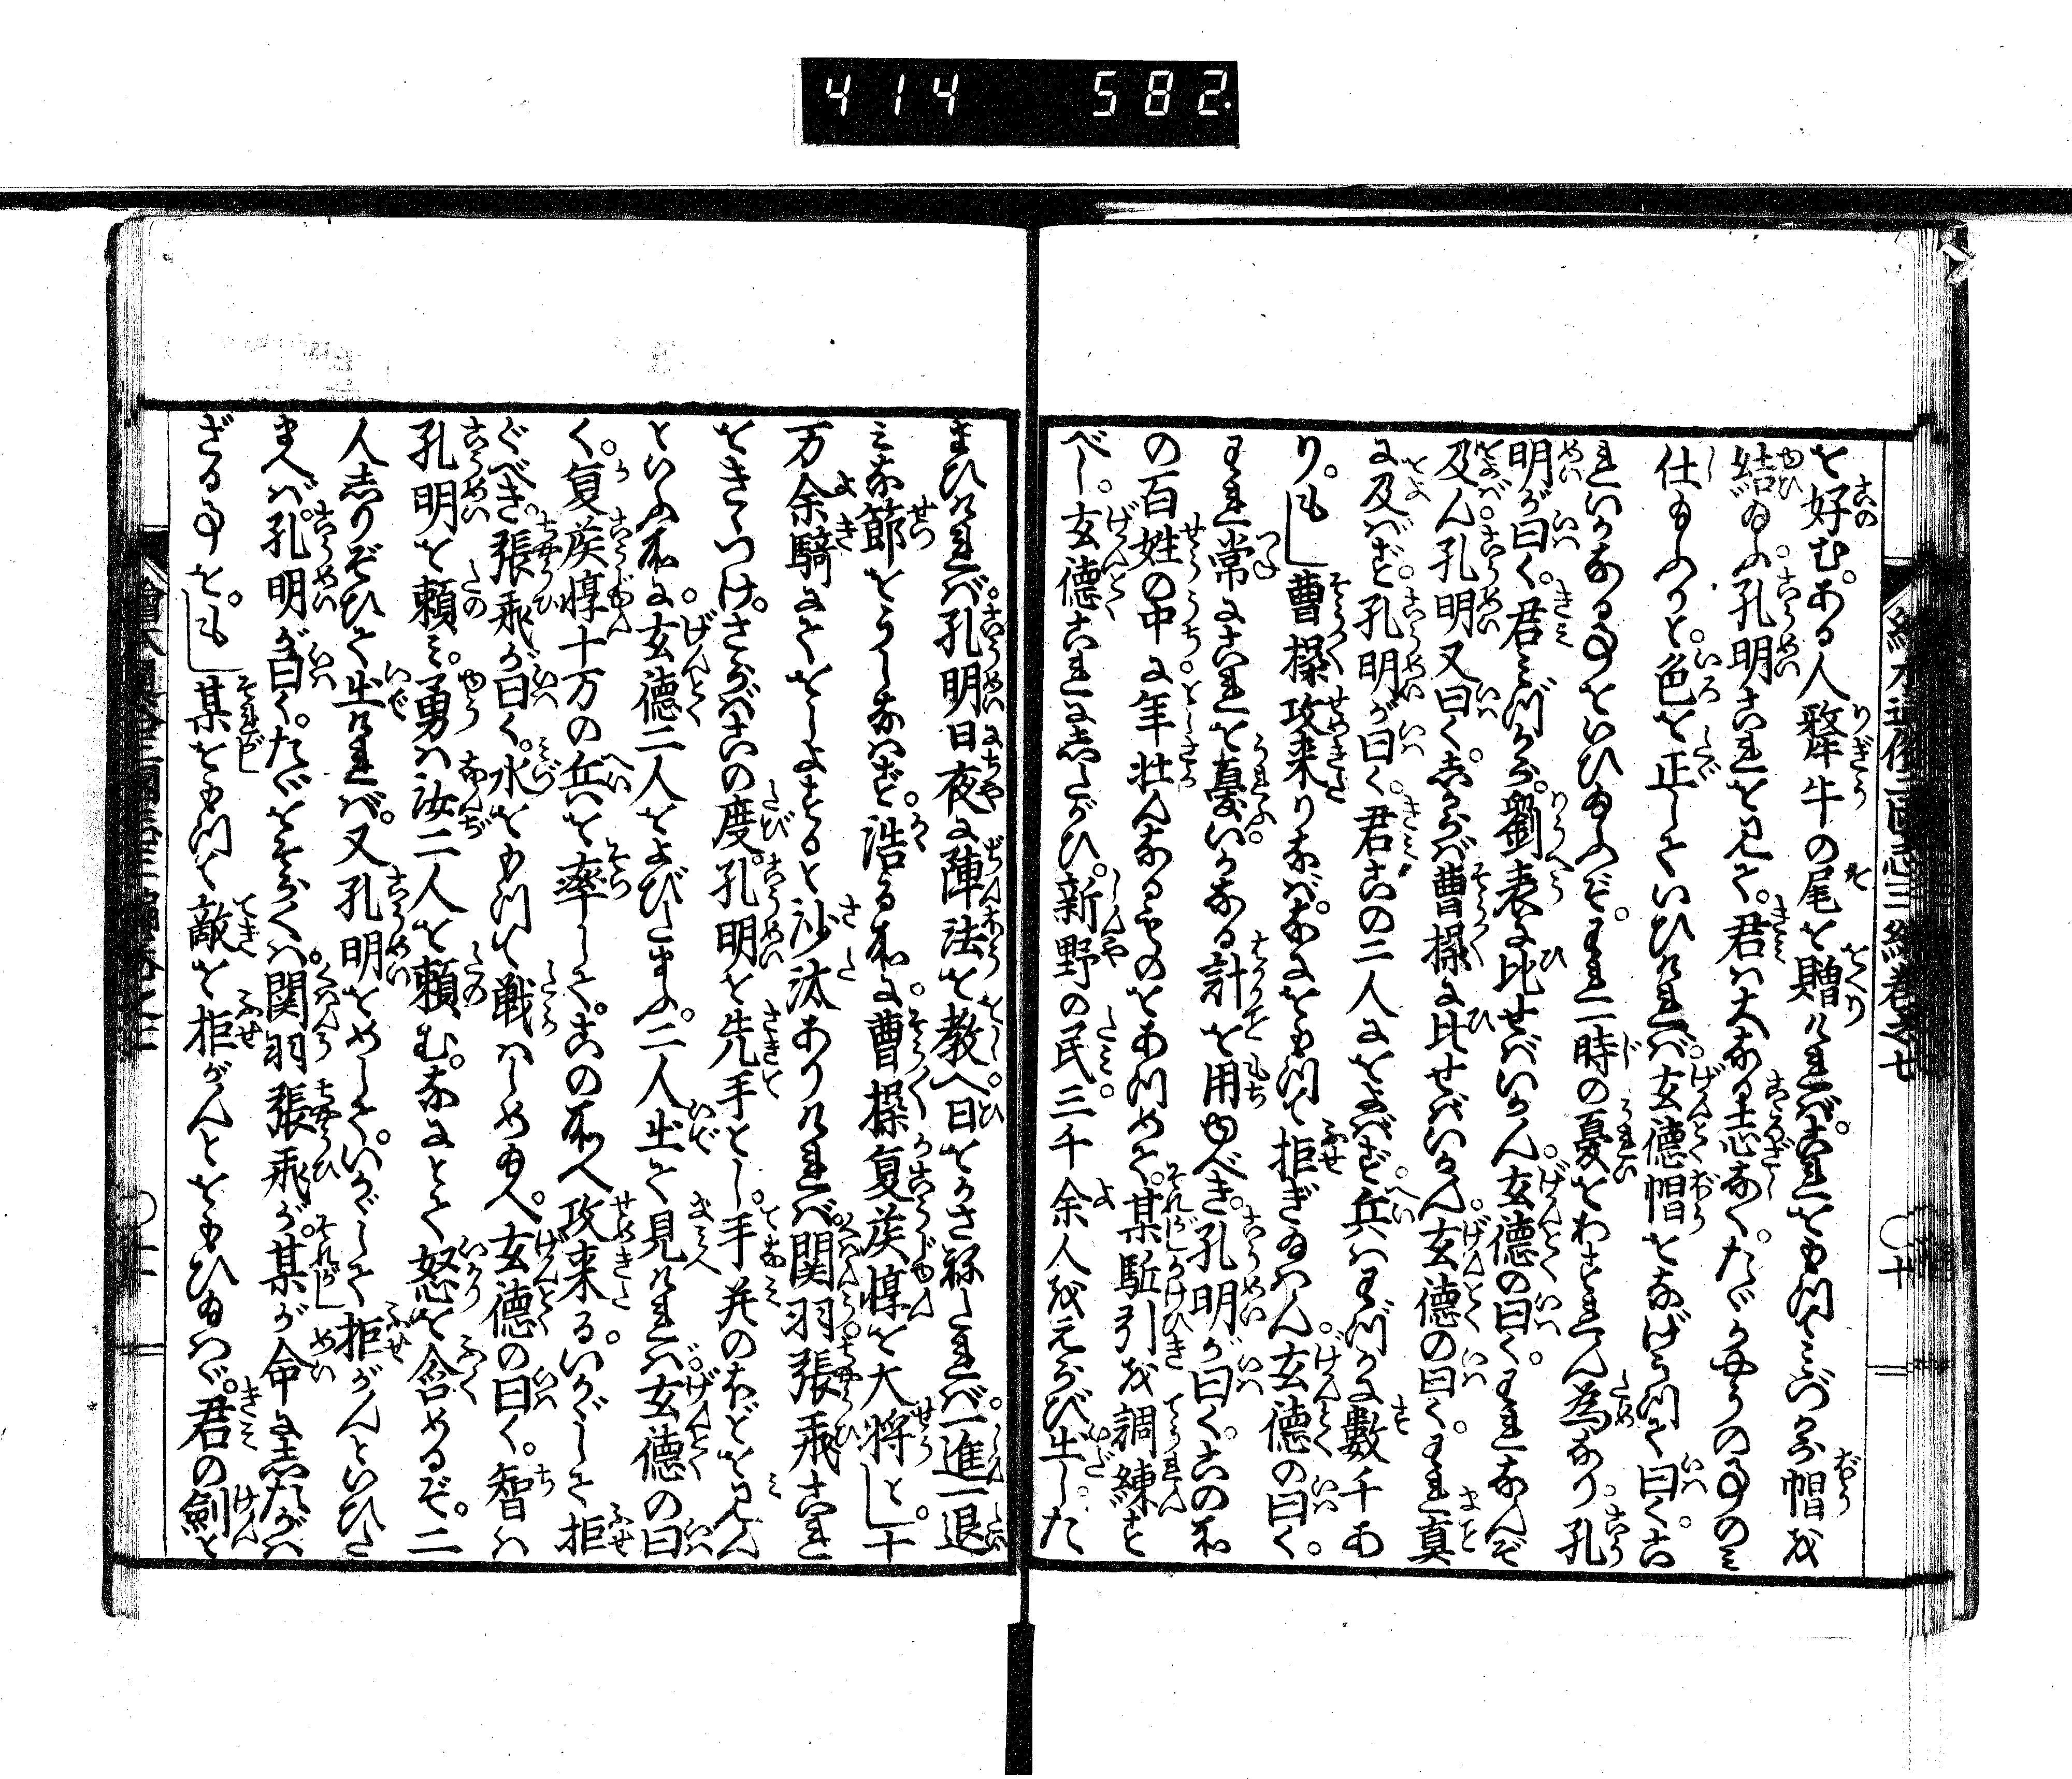 414 582
繪本通俗三國志三編卷之七 〇十
を好む。ある人犛牛の尾を贈りければ。これをもつてみづから帽を
結ゐふ。孔明これを見て。君は大なる志なく。たゞかやうの事のみ
仕給ふかと。色を正していひければ。玄德帽をなげうつて曰く。こ
れいかなる事をいひ給ふぞ。われ一時の憂をわすれん為なり。孔
明が曰く。君みづから。劉表に比せばいかん。玄德の曰く。われなんぞ
及ん。孔明又曰く。しからば曹操に比せばいかん。玄德の曰く。われ真
に及ばず。孔明が曰く。君この二人におよばず。兵はわづかに數千あ
り。もし曹操攻来りなば。なにをもつて拒ぎ給はん。玄德の曰く。
われ常にこれを憂ふ。いかなる計を用ゆべき。孔明が曰く。この所
の百姓の中に年壮んなるものをあつめて。某駈引を調練す
べし。玄德これにしたがひ。新野の民三千余人を えらび出した
まひければ。孔明日夜に陣法を教へ曰をかさねたれば。一進一退
みな節をうしなはず。浩る所に。曹操夏侯惇を大将として。十
万余騎にてをしよすると沙汰ありければ。関羽張飛これ
をきゝつけ。さらばこの度。孔明を先手とし。手并のほどを見ん
といふ所に。玄德二人をよびたまふ。二人出て見ければ。玄德の曰
く。夏侯惇十万の兵を率して。この所へ攻来る。いかゞして拒
ぐべき。張飛が曰く。水をもつて戦はしめ給へ。玄德の曰く。智は
孔明を頼み。勇は汝二人を頼む。なにとて怒を含めるぞ。二
人しりぞひて出ければ。又孔明をめして。いかゞして拒がんといひた
まへば。孔明が曰く。たゞをそらくは。関羽張飛が。某が命にしたがは
ざる事を。もし某をもつて敵を拒がんとをもひ給はゞ。君の劍と